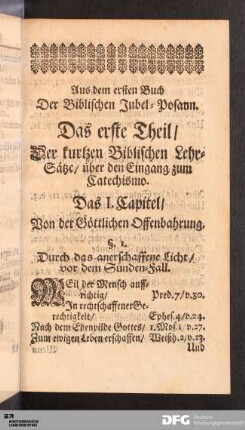 Aus dem ersten Buch
Der Biblischen Jubel-Posaun.
Das erste Theil/
Der kurtzen Biblischen Lehr-
Sätze/ über den Eingang zum
Catechismo.
Das I. Capitel/
Von der Göttlichen Offenbahrung.
§. 1.
Durch das anerschaffene Licht/
vor dem Sünden-Fall.
WEil der Mensch auff-
richtig/ Pred. 7/ v. 30.
In rechtschaffener Ge-
rechtigkeit/ Ephes. 4/ v. 24.
Nach dem Ebenbilde Gottes/ 1. Mos. 1/ v. 27.
Zum ewigen Leben erschaffen/ Weißh. 2/ v. 23.
Und
DFG Deutsche
Forschungsgemeinschaft